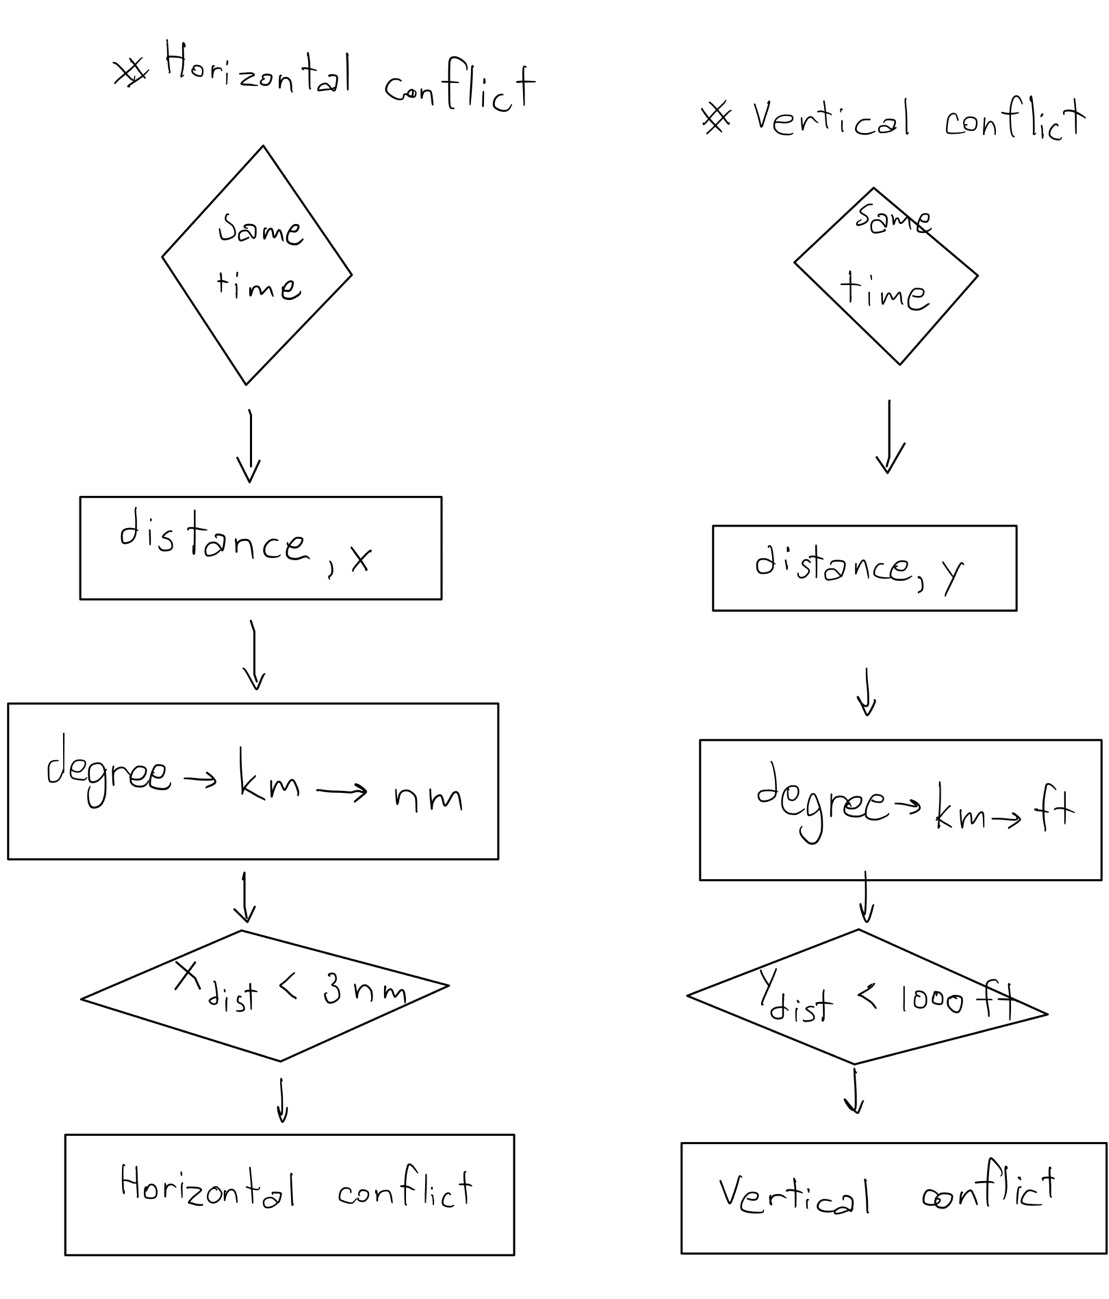 ※ Horizontal conflict
Same
time
distance, x
degree → km → nm
X dist < 3 nm
Horizontal conflict
※ Vertical conflict
Same
time
distance, y
degree → km → ft
y dist < 1000 ft
Vertical conflict